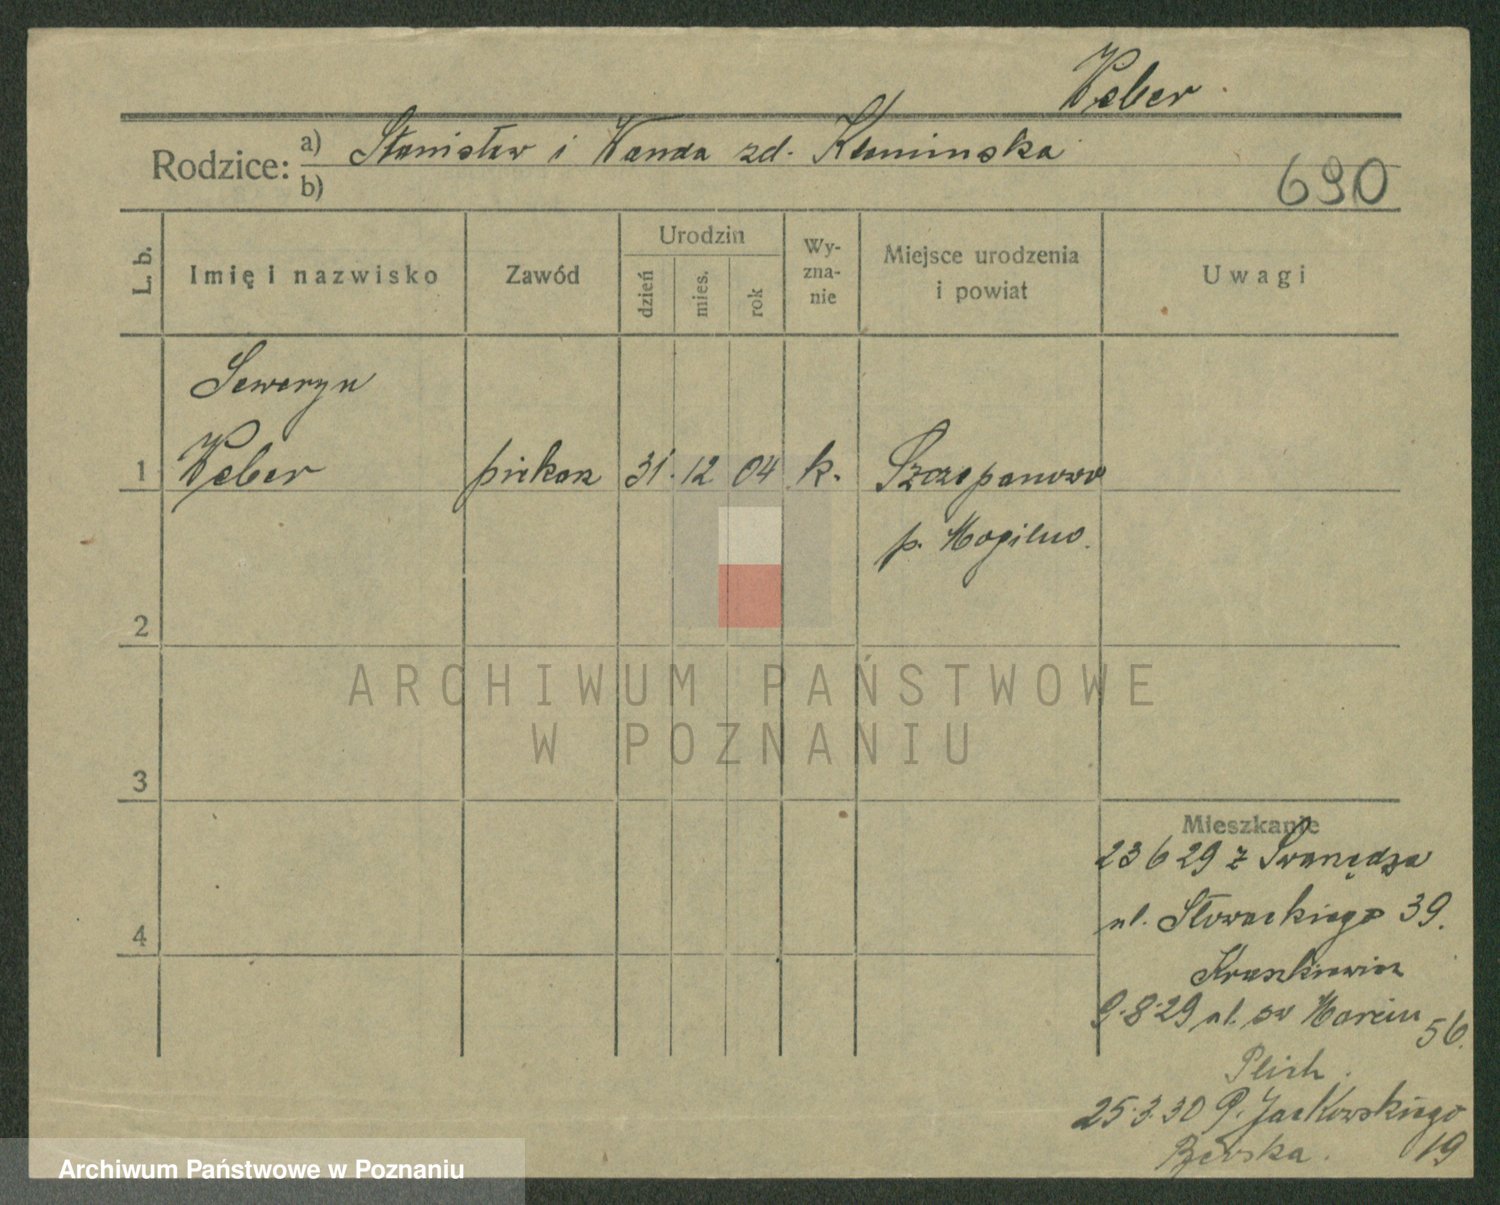 Weber
Rodzice: a) Stanisław i Wanda zd. Kłominska
b)
690
L. b.
Imię i nazwisko
Zawód
Urodzin
dzień
mies.
rok
Wy-
zna-
nie
Miejsce urodzenia
i powiat
Uwagi
Seweryn
1 Weber piekarz 31. 12 04 k. Szczepanowo
p. Mogilno.
2
3
4
Mieszkanie
23 6 29 z Swarzędza
ul. Słowackiego 39.
9.8.29 ul. św Marcin 56.
25.3.30 P. Jackowskiego
19
ARCHIWUM PAŃSTWOWE
W POZNANIU
Archiwum Państwowe w Poznaniu